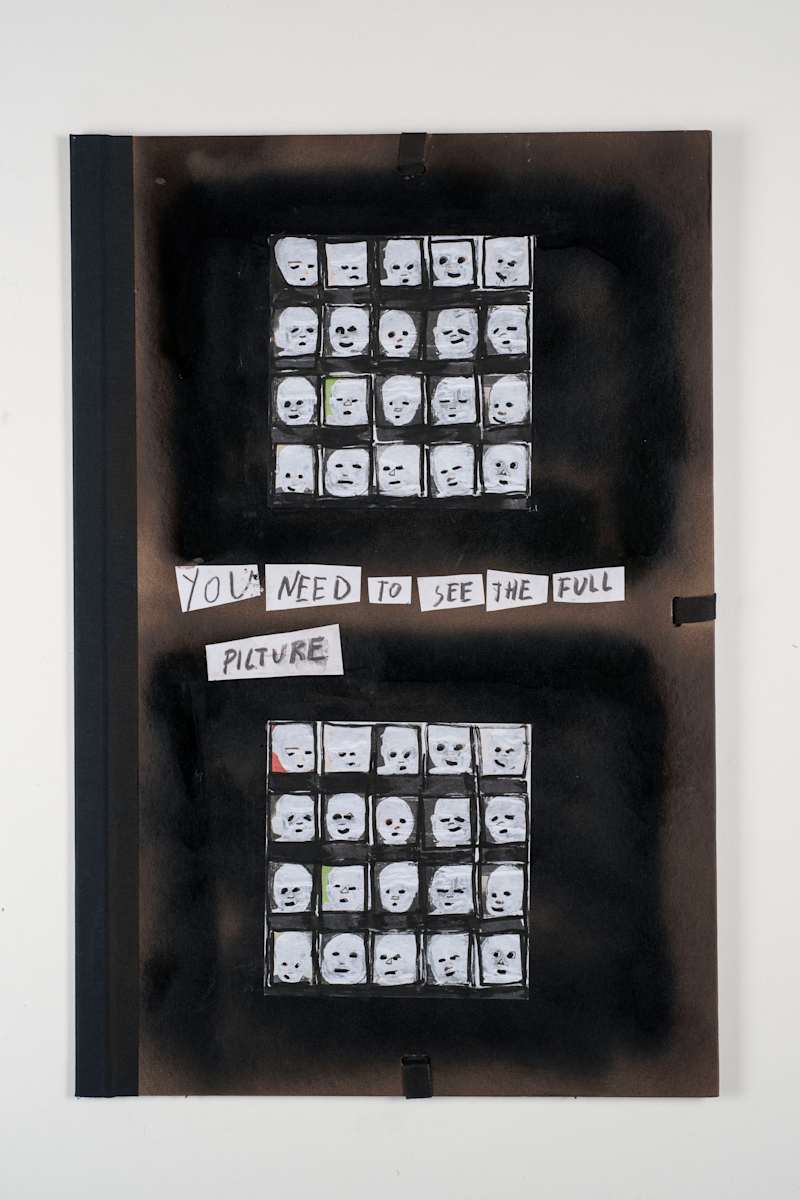 YOU NEED TO SEE THE FULL
PICTURE